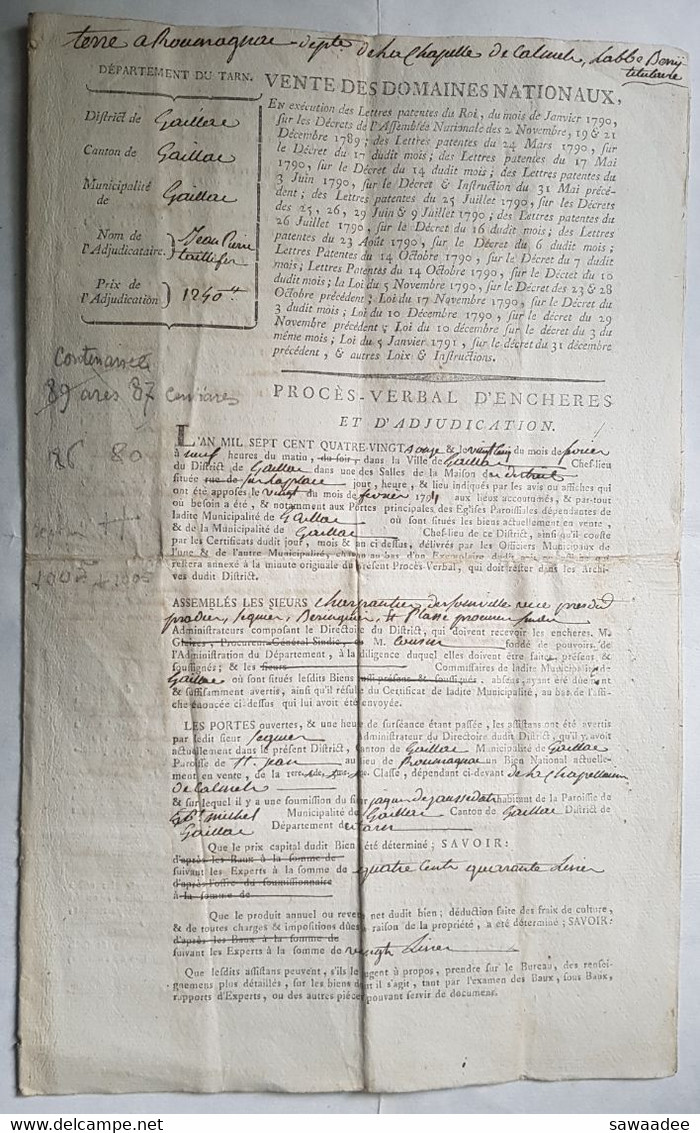 terre a Roumagnac depte de la Chapelle de Calmels, l'abbé
titulaire
DÉPARTEMENT DU TARN.
District de Gaillac
Canton de Gaillac
Municipalité
de Gaillac
Nom de
l'Adjudicataire. Jean Pierre
taillefer
Prix de
l'Adjudication 1240 ₶
VENTE DES DOMAINES NATIONAUX,
En exécution des Lettres patentes du Roi, du mois de Janvier 1790,
sur les Décrets de l'Assemblée Nationale des 2 Novembre, 19 & 21
Décembre 1789; des Lettres patentes du 24 Mars 1790, sur
le Décret du 17 dudit mois; des Lettres patentes du 17 Mai
1790, sur le Décret du 14 dudit mois; des Lettres patentes du
3 Juin 1790, sur le Décret & Instruction du 31 Mai précé-
dent; des Lettres patentes du 25 Juillet 1790, sur les Décrets
des 25, 26, 29 Juin & 9 Juillet 1790; des Lettres patentes du
26 Juillet 1790, sur le Décret du 16 dudit mois; des Lettres
patentes du 23 Août 1790, sur le Décret du 6 dudit mois;
Lettres Patentes du 14 Octobre 1790, sur le Décret du 7 dudit
mois; Lettres Patentes du 14 Octobre 1790, sur le Décret du 10
dudit mois; la Loi du 5 Novembre 1790, sur le Décret des 23 & 28
Octobre précédent; Loi du 17 Novembre 1790, sur le Décret du
3 dudit mois; Loi du 10 Décembre 1790, sur le décret du 29
Novembre précédent; Loi du 10 décembre sur le décret du 3 du
même mois; Loi du 5 Janvier 1791, sur le décret du 31 décembre
précédent, & autres Loix & Instructions.
Contenance
89 ares 87 centiares
86 80
PROCÈS-VERBAL D'ENCHERES
ET D'ADJUDICATION.
L'AN MIL SEPT CENT QUATRE-VINGT onze & le vingt cinq du mois de fevrier
à neuf heures du matin, du soir, dans la Ville de Gaillac Chef-lieu
du District de Gaillac dans une des Salles de la Maison de
située rue de sur la place jour, heure, & lieu indiqués par les avis ou affiches qui
ont été apposés le vingt du mois de fevrier 1791 aux lieux accoutumés, & par-tout
ou besoin a été, & notamment aux Portes principales des Eglises Paroissiales dépendantes de
ladite Municipalité de Gaillac où sont situés les biens actuellement en vente,
& de la Municipalité de Gaillac Chef-lieu de ce District, ainsi qu'il conste
par les Certificats dudit jour, mois & an ci dessus, délivrés par les Officiers Municipaux de
l'une & de l'autre Municipalité,
restera annexé à la minute originale du présent Procès-Verbal, qui doit rester dans les Archi-
ves dudit District.
ASSEMBLÉS LES SIEURS
Administrateurs composant le Directoire du District, qui doivent recevoir les encheres. M.
Procureur-Général-Sindic, ou M. Cousin fondé de pouvoirs de
l'Administration du Département, à la diligence duquel elles doivent être faites, présens &
soussignés; & les sieurs Commissaires de ladite Municipalité
Gaillac où sont situés lesdits Biens aussi présens & soussignés, absens ayant été dûement
& suffisamment avertis, ainsi qu'il résulte du Certificat de ladite Municipalité, au bas de l'affi-
che énoncée ci-dessus qui lui avoit été envoyée.
LES PORTES ouvertes, & une heure de surséance étant passée, les assistans ont été avertis
par ledit sieur Sequier administrateur du Directoire dudit District, qu'il y avoit
actuellement dans le présent District, Canton de Gaillac Municipalité de Gaillac
Paroisse de St. Jean au lieu de Roumagnac un Bien National actuelle-
ment en vente, de la 1ere Classe, dépendant ci-devant de la Chapellainie
de Calmels
& sur lequel il y a une soumission du sieur habitant de la Paroisse de
St. michel Municipalité de Gaillac Canton de Gaillac District de
Gaillac Département du tarn
Que le prix capital dudit Bien a été déterminé; SAVOIR:
d'après les Baux à la somme de
suivant les Experts à la somme de quatre cents quarante Livres
d'après l'offre du soumissionnaire
à la somme de
Que le produit annuel ou revenu net dudit bien; déduction faite des fraix de culture,
& de toutes charges & impositions dûes à raison de la propriété, a été déterminé; SAVOIR:
d'après les Baux à la somme de
suivant les Experts à la somme de vingt Livres
Que lesdits assistans peuvent, s'ils le jugent à propos, prendre sur le Bureau, des rensei-
gnemens plus détaillés, sur les biens dont il s'agit, tant par l'examen des Baux, sous Baux,
rapports d'Experts, ou des autres pièces pouvant servir de document.
www.delcampe.net
sawaadee